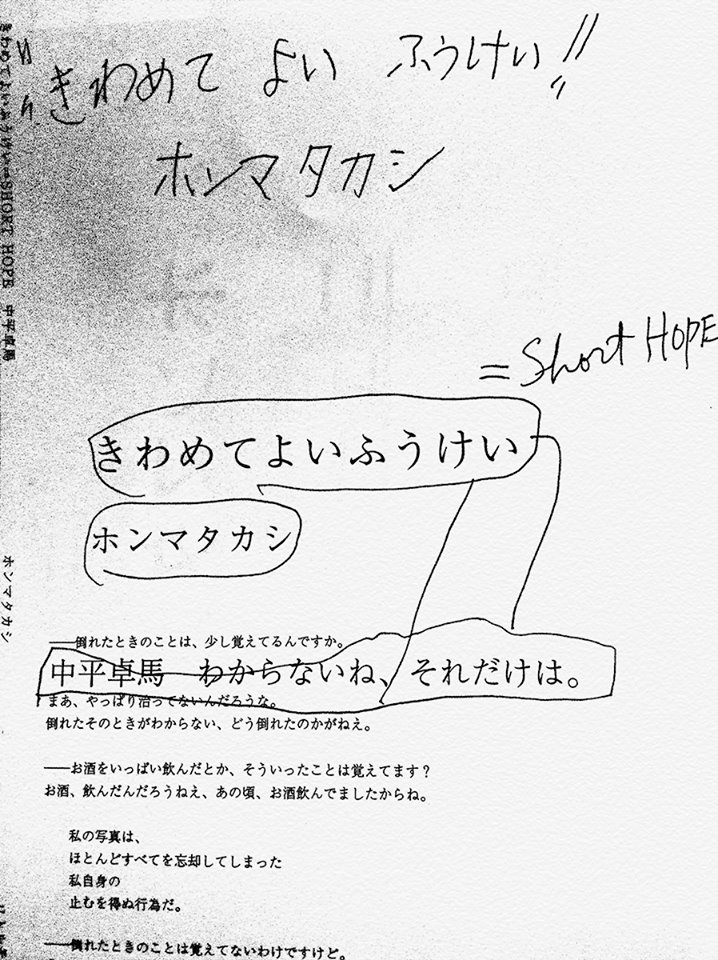 "きわめて よい ふうけい!!"
ホンマタカシ
= Short HOPE
きわめてよいふうけい
ホンマタカシ
――倒れたときのことは、少し覚えてるんですか。
中平卓馬　わからないね、それだけは。
まあ、やっぱり治ってないんだろうな。
倒れたそのときがわからない、どう倒れたのかがねえ。
――お酒をいっぱい飲んだとか、そういったことは覚えてます？
お酒、飲んだんだろうねえ、あの頃、お酒飲んでましたからね。
私の写真は、
ほとんどすべてを忘却してしまった
私自身の
止むを得ぬ行為だ。
――倒れたときのことは覚えてないわけですけど。
きわめてよいふうけい=SHORT HOPE 中平卓馬
ホンマタカシ